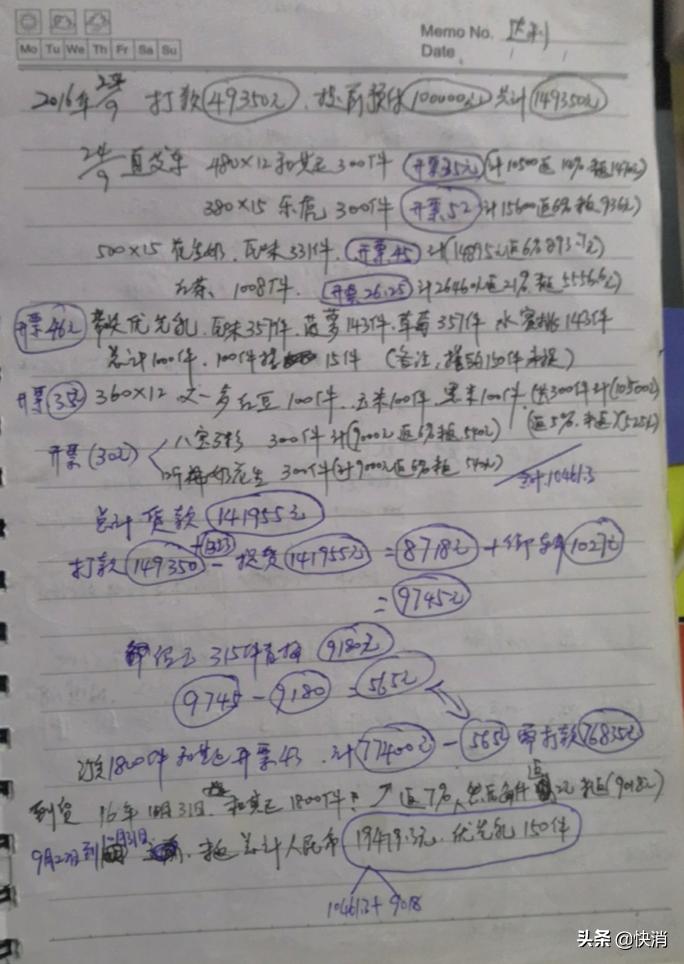 Memo No. 达利
Mo Tu We Th Fr Sa Su
Date
2016年24/9 打款49350元, 提前预付100000元 总计149350元
24/9 直发车 480×12和其正300件 开票35元(计10500返14%未返1470元)
380×15 乐虎 300件 开票52 计15600返6%未返936元
500×15 花生奶.原味331件.开票45 计(14895元返6%893.7元)
1008件. 开票26.25 计26460元返21%未返5556.6元
开票46元 优先乳.原味357件.菠萝143件.草莓357件 水蜜桃143件
总计1000件.100件搭15件 (备注,搭的150件未提)
开票35元 360×12 红豆100件..玉米100件.黑米100件.(共300件计(10500元
(返5%.未返)(525元)
开票(30元) 八宝 300件计(9000元返6%未返540元)
花生 300件(计9000元返6%未返540元) 合计10461.3
总计 货款 141955元
打款149350+1323-提货141955元=8718元+卸车1027元
=9745元
315件 9180元
9745-9180=565元
1800件和其正开票43.计77400元-565元 打款76835元
到货 16年10月31日.和其正1800件 返7%,然后每件返2元 未返(9018元)
9月22日到10月31日 未返 总计人民币19479.3元.优先乳150件
10461.3+9018
头条@快消